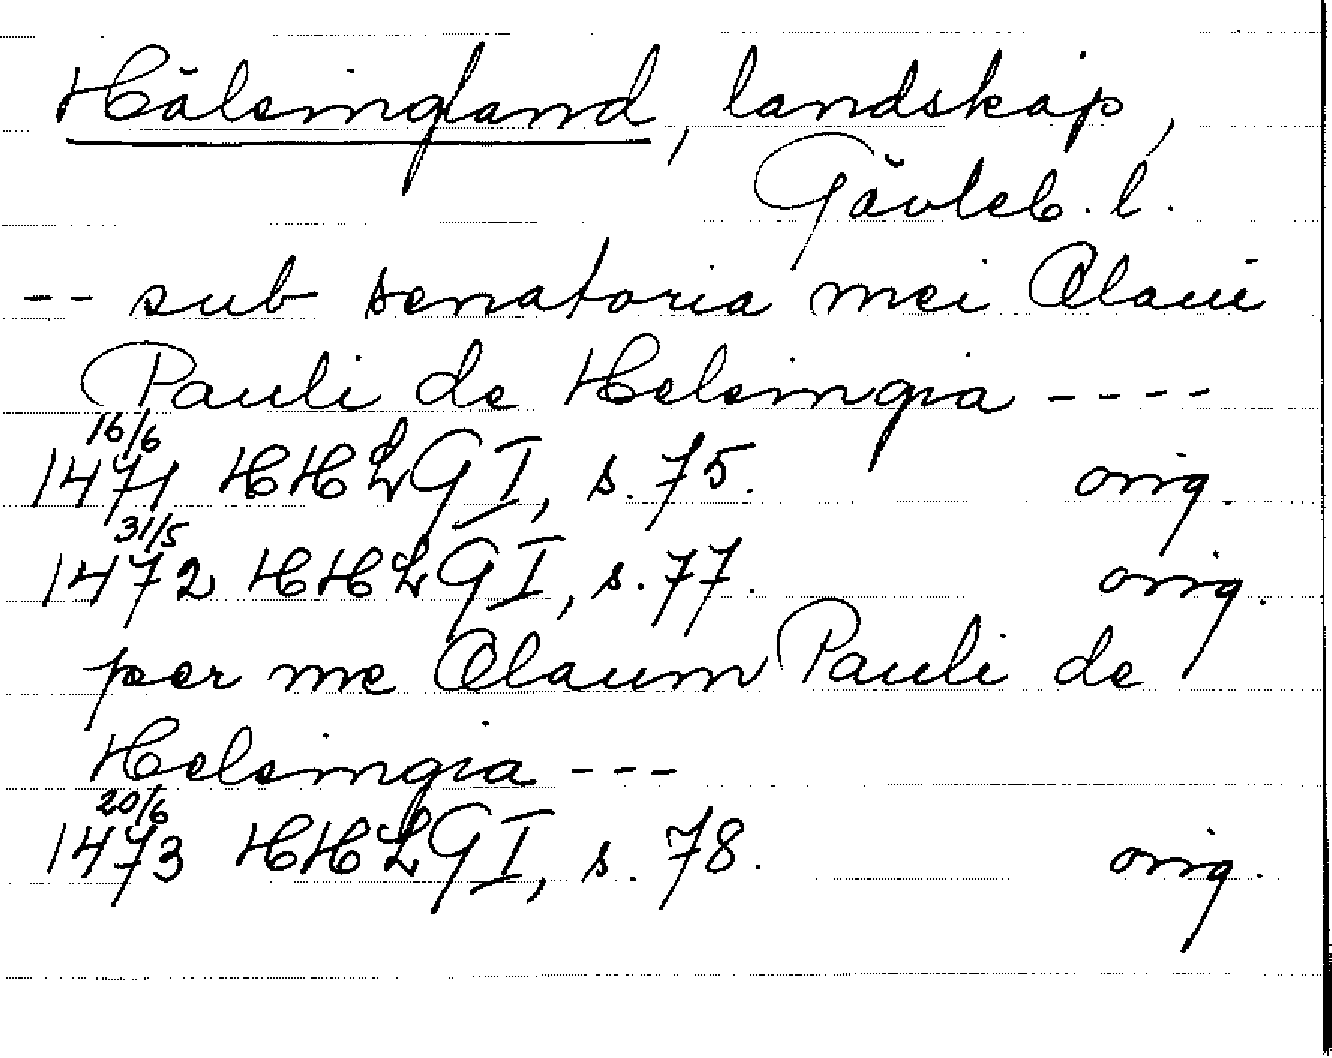 Hälsingland, landskap,
Gävleb. l.
-- sub senatoria mei Olaui
Pauli de Helsingia ----
16/6
1471 HHLG I, s. 75. orig.
31/5
1472 HHLG I, s. 77. orig.
per me Olaum Pauli de
Helsingia ---
20/6
1473 HHLG I, s. 78. orig.